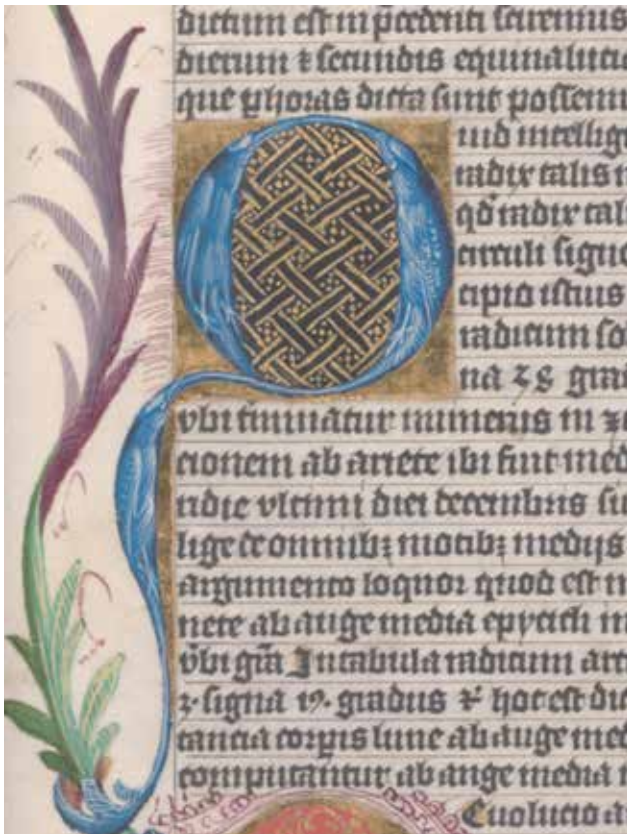 dictum est in p̄cedenti sciemus
dierum ⁊ secundis equinalucia
que ꝑ horas dicta sunt possem
Quid intellig
radix talis
qđ radix cali
circuli signo
cipio istius
radicum so
na 28 grad
vbi tminatur numerus in
cionem ab ariete ibi sint med
ridie vltimi diei decembris su
lige de omnib; motib; medijs
argumento loquor quod est
nere ab auge media epycicli
v̄bi grā In tabula radicum
3 · signa 19 · gradus ⁊ hoc est
tancia corpis lune ab auge med
computantur ab auge media
Euolucio